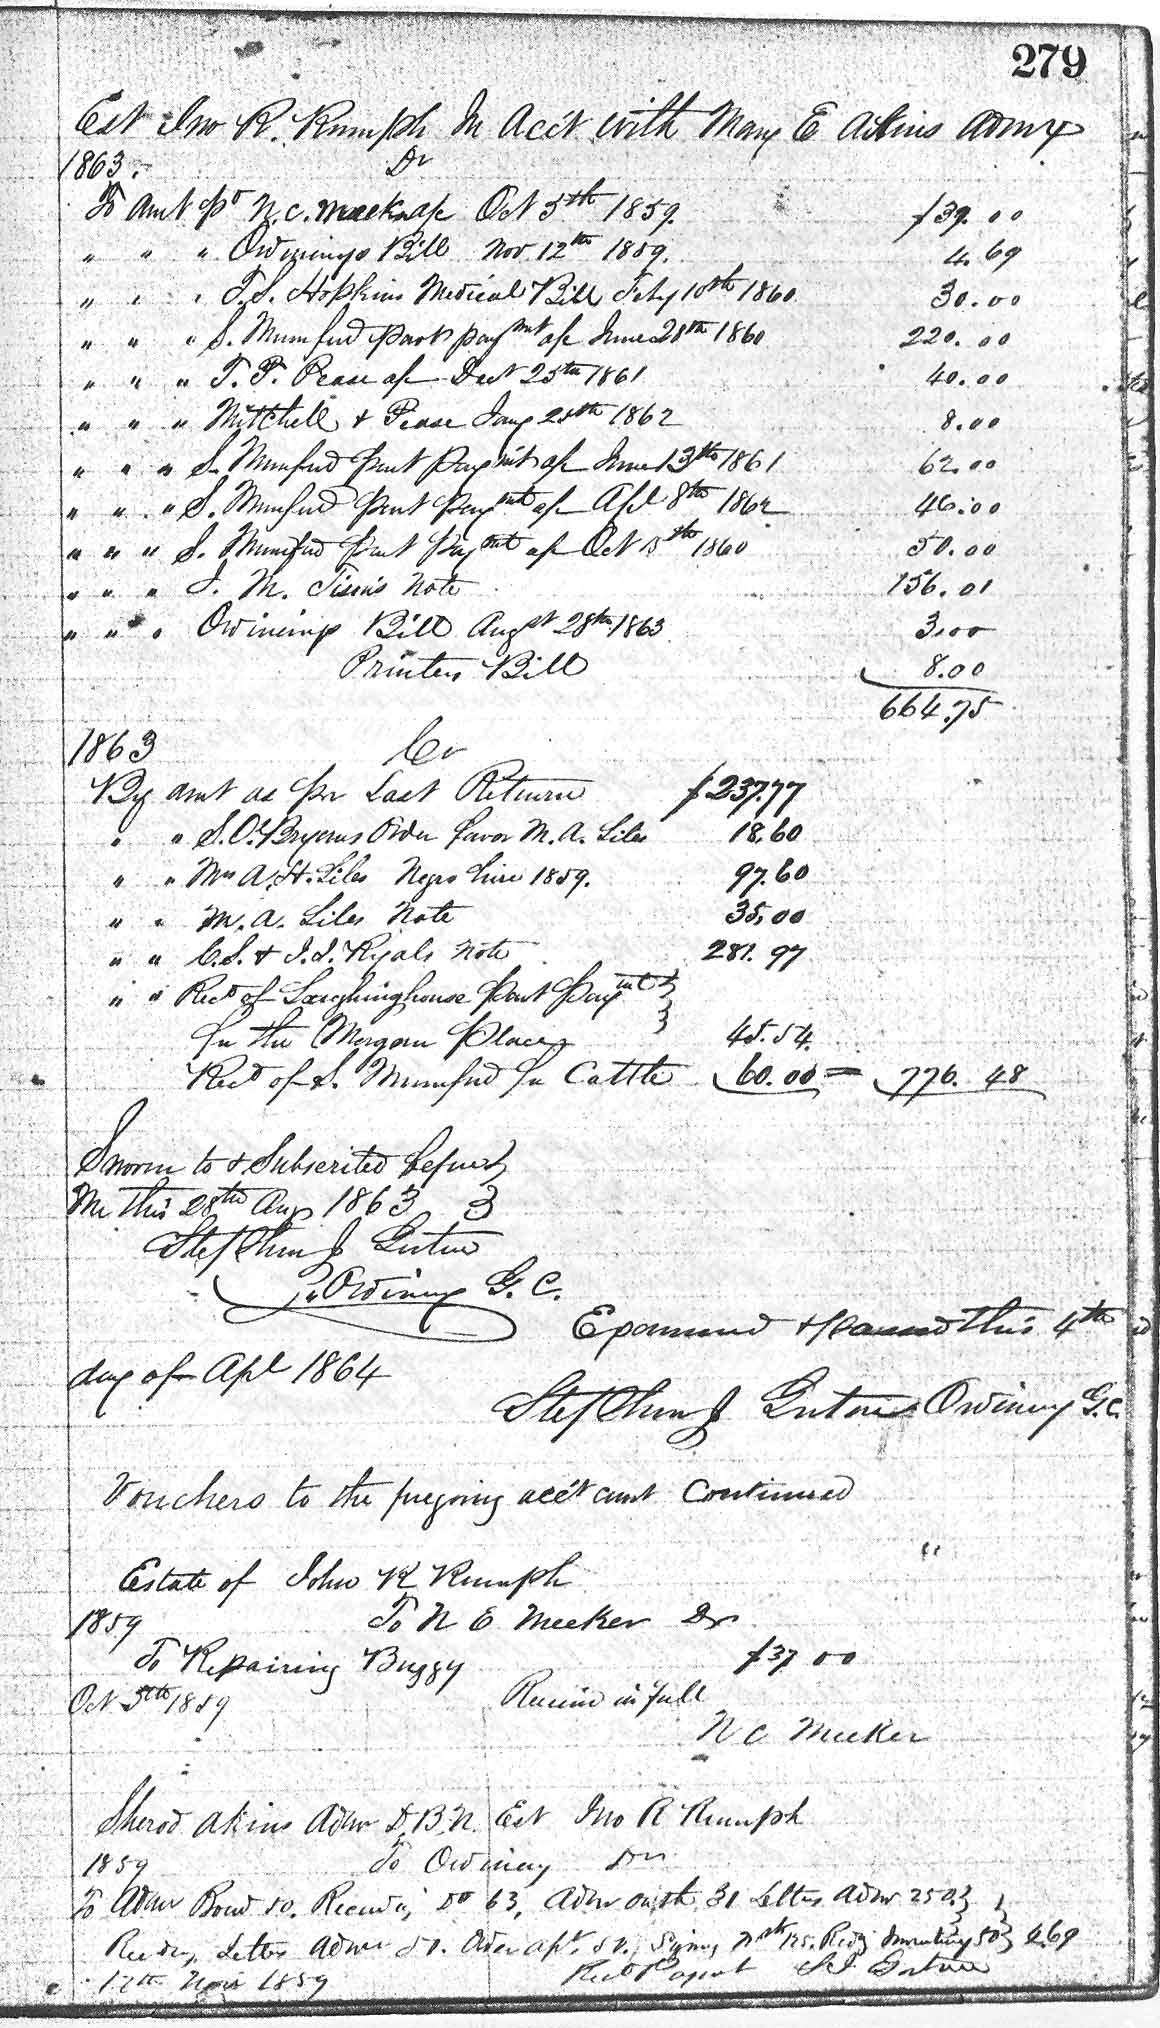 279
Est Jno R. Rumph In Acct with Mary E Akins Admx
1863. Dr
To Amt pd N. C. Meeker a/c Oct 5th 1859. $39.00
" " " Ordinarys Bill Nov. 12th 1859. 4.69
" " " T. S. Hopkins Medical Bill Feby 10th 1860 30.00
" " " S. Mumford part paymt a/c June 28th 1860 220.00
" " " T. P. Pease a/c Dect 25th 1861 40.00
" " " Mitchell & Pease Jany 25th 1862 8.00
" " " S. Mumford part paymt a/c June 13th 1861 62.00
" " " S. Mumford part paymt a/c Apl 8th 1862 46.00
" " " S. Mumford part paymt a/c Oct 15th 1860 50.00
" " " J. M. Tison's Note 156.01
" " " Ordinarys Bill Augst 28th 1863 3.00
Printers Bill 8.00
664.75
1863 Cr
By amt as per Last Return $237.77
" " S. O'Bryans Order favor M. A. Liles 18.60
" " Mrs A. H. Liles Negro hire 1859. 97.60
" " M. A. Liles Note 35.00
" " C. S. & J. J. Ryals Note 281.97
" " Recd of Laughinghouse part paymt
for the Morgan Place 45.54
Recd of S. Mumford for Cattle 60.00 = 776.48
Sworn to & Subscribed before
Me this 28th Aug 1863
Stephen J Gorton
Ordinary G. C.
Examined & passed this 4th
day of Apl 1864
Stephen J Gorton Ordinary G.C.
Vouchers to the foregoing acct amt Continued
"
Estate of John R Rumph
1859 To N E Meeker Dr
To Repairing Buggy $37 00
Oct 5th 1859 Receivd in full
N C Meeker
Sherod Akins Admr D.B.N. Est Jno R Rumph
1859 To Ordinary Dr
To Admr Bond 50. Recording Do 63, Admr oath 31 Letters Admr 250.
Recdg Letters Admr 50. Order apt. 50. 125. Recdg Inventory 50 4.69
12th Nov 1859 Recd Paymt S J Gorton